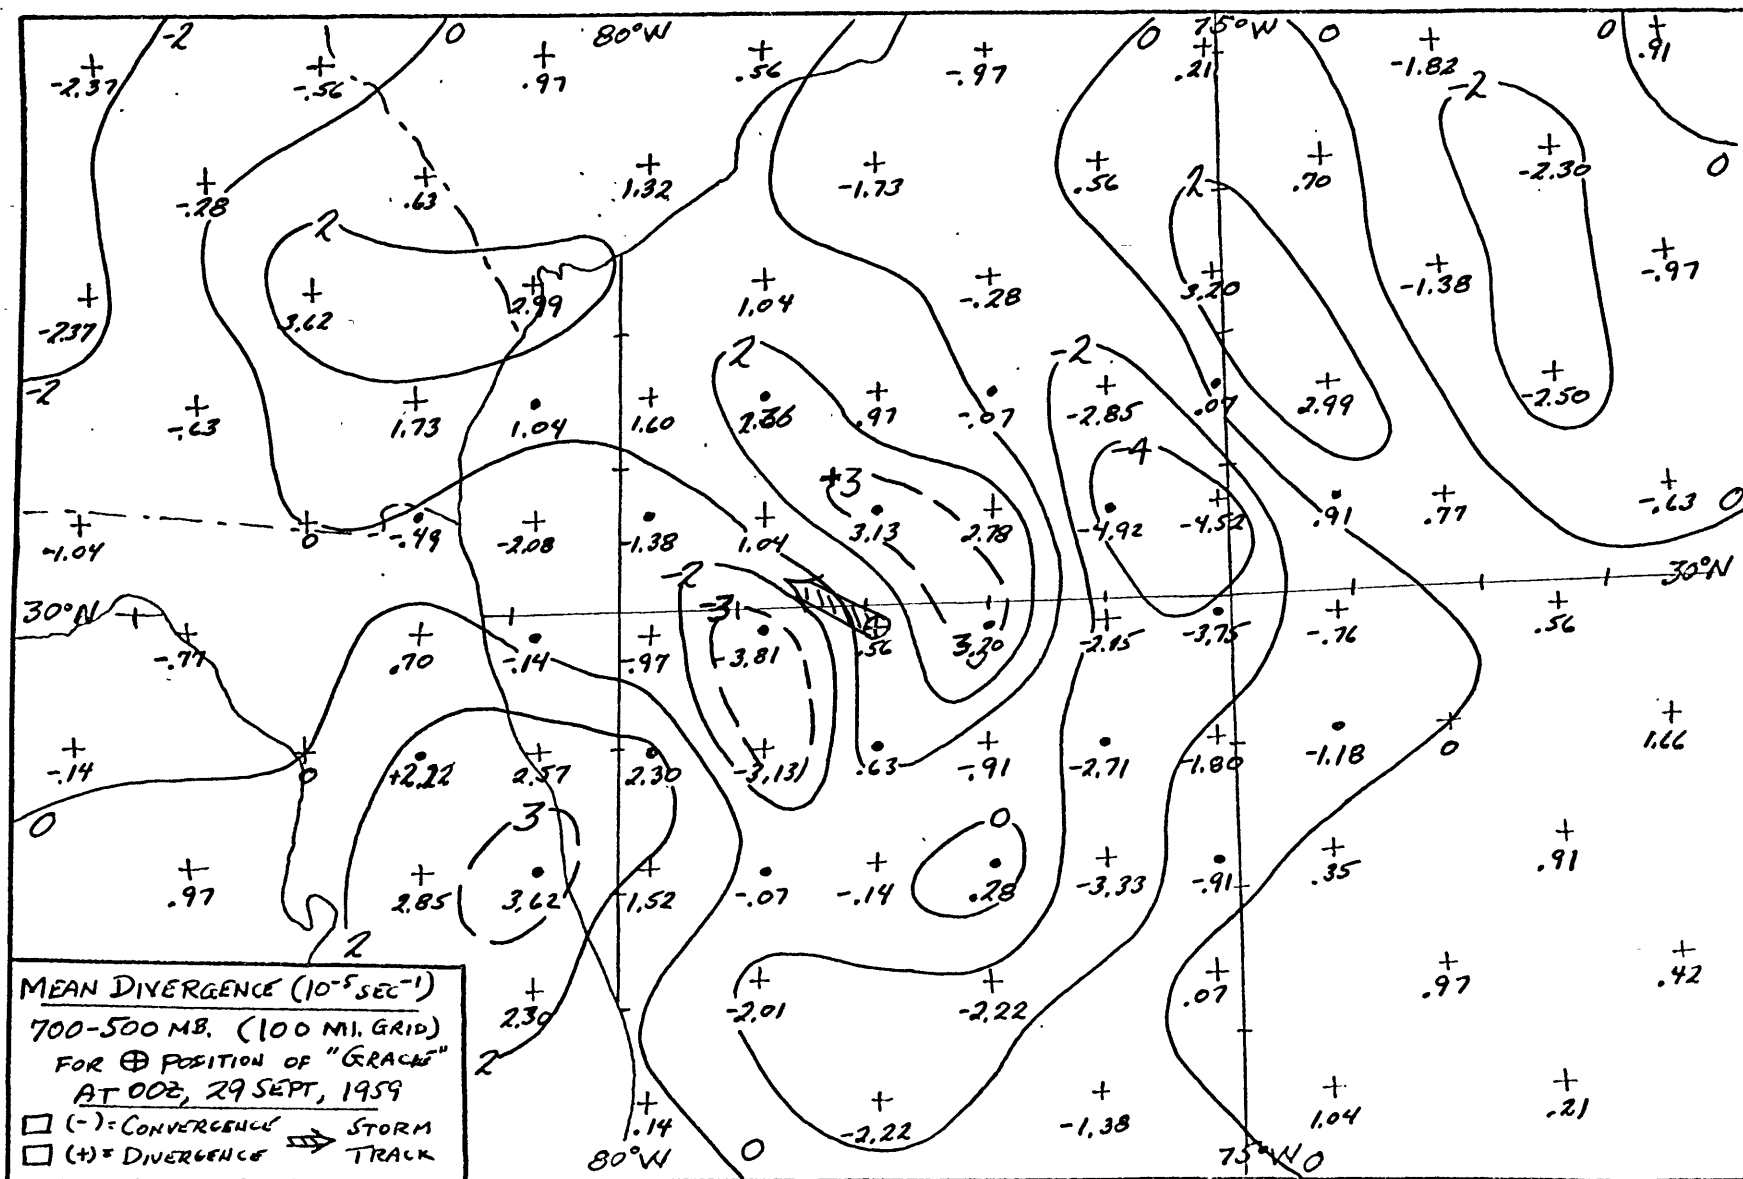 -2 0 80°W 0 75°W 0 0
-2.37 -.56 .97 .56 -.97 .21 -1.82 .91
-2
-.28 .63 1.32 -1.73 .56 2 .70 -2.30 0
2
-2.37 3.62 2.99 1.04 -.28 3.20 -1.38 -.97
2 -2
-2 -.63 1.73 1.04 1.60 .97 -.07 -2.85 .07 2.99 -2.50
-4
+3
-1.04 0 -.49 -2.08 -1.38 1.04 3.13 2.78 -4.92 -4.52 .91 .77 -.63 0
-2 30°N
30°N -3
-.77 .70 -.14 -.97 -3.81 .56 3.20 -2.15 -3.75 -.76 .56
-.14 0 +2.22 2.57 2.30 -3.13 .63 -.91 -2.71 -1.80 -1.18 0 1.66
0 3 0
.97 2.85 3.62 1.52 -.07 -.14 .28 -3.33 -.91 .35 .91
2
2.30 -2.01 -2.22 .07 .97 .42
2
.14 -2.22 -1.38 1.04 .21
80°W 0 75°W 0
MEAN DIVERGENCE (10-5 SEC-1)
700-500 MB. (100 MI. GRID)
FOR ⊕ POSITION OF "GRACIE"
AT 00Z, 29 SEPT, 1959
(-)= CONVERGENCE STORM
(+)= DIVERGENCE TRACK